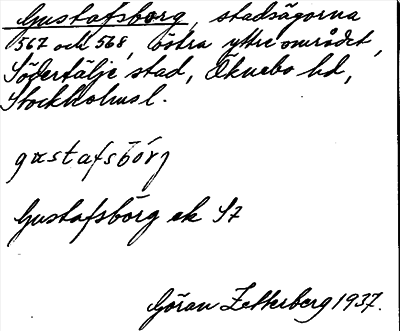 Gustafsborg, stadsägorna
567 och 568, östra yttre området,
Södertälje stad, Öknebo hd,
Stockholms l.
gustafsbórj
Gustafsborg ek 57
Göran Zetterberg 1937.